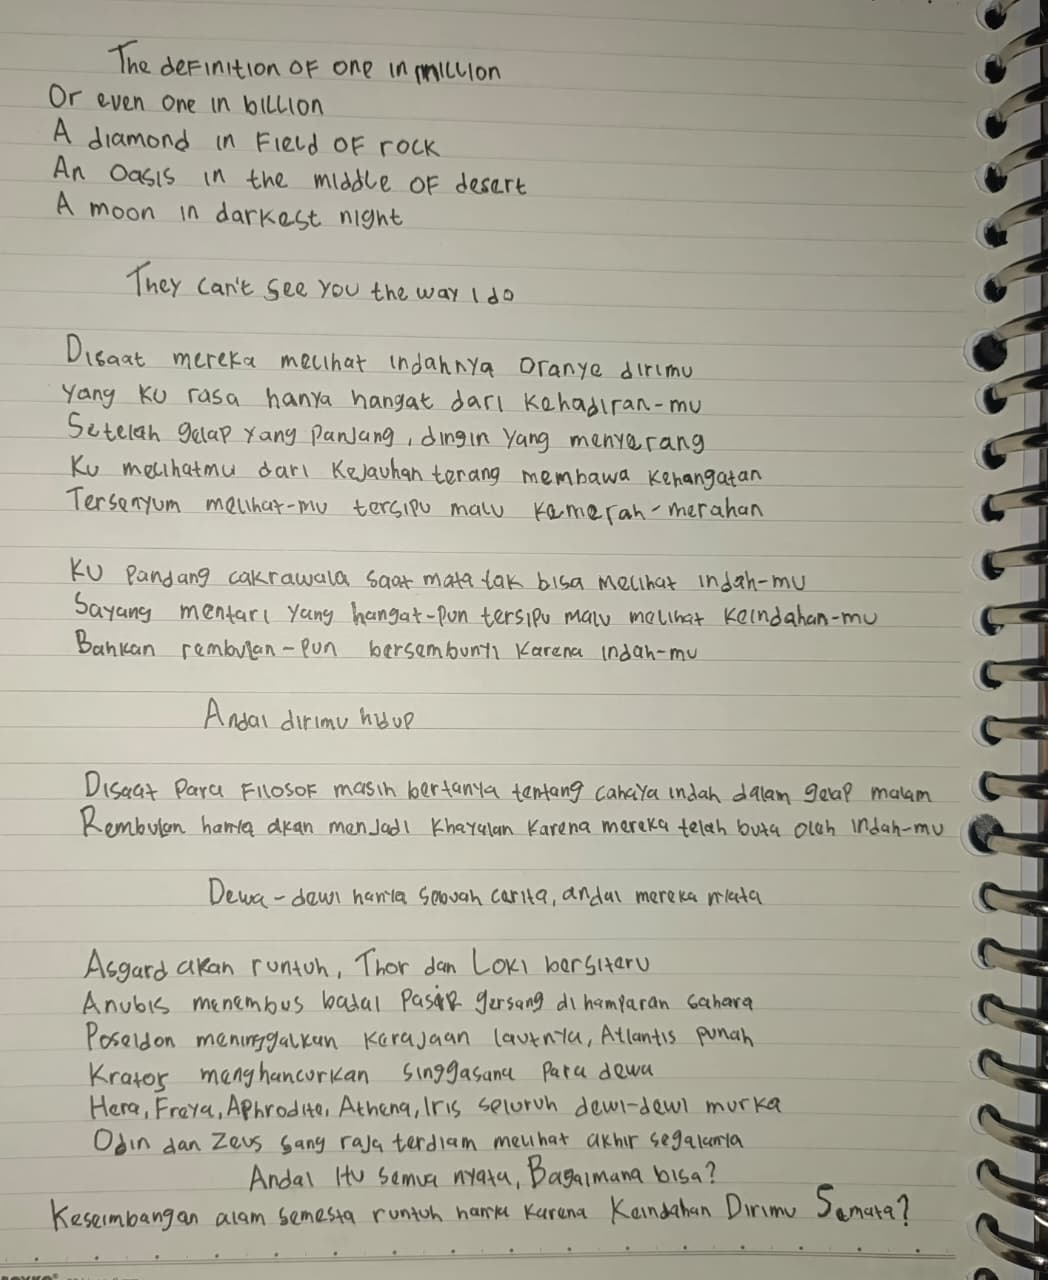 The definition of one in million
Or even one in billion
A diamond in field of rock
An Oasis in the middle of desert
A moon in darkest night
They can't see you the way I do
Disaat mereka melihat indahnya oranye dirimu
Yang ku rasa hanya hangat dari kehadiran-mu
Setelah gelap yang panjang, dingin yang menyerang
Ku melihatmu dari kejauhan terang membawa kehangatan
Tersenyum melihat-mu tersipu malu kemerah-merahan
Ku pandang cakrawala saat mata tak bisa melihat indah-mu
Sayang mentari yang hangat-pun tersipu malu melihat keindahan-mu
Bahkan rembulan-pun bersembunyi karena indah-mu
Andai dirimu hidup
Disaat para filosof masih bertanya tentang cahaya indah dalam gelap malam
Rembulan hanya akan menjadi khayalan karena mereka telah buta oleh indah-mu
Dewa-dewi hanya sebuah cerita, andai mereka nyata
Asgard akan runtuh, Thor dan Loki berseteru
Anubis menembus badai pasir gersang di hamparan sahara
Poseidon meninggalkan kerajaan lautnya, Atlantis punah
Kratos menghancurkan singgasana para dewa
Hera, Freya, Aphrodite, Athena, Iris seluruh dewi-dewi murka
Odin dan Zeus sang raja terdiam melihat akhir segalanya
Andai itu semua nyata, Bagaimana bisa?
Keseimbangan alam semesta runtuh hanya karena Keindahan Dirimu Semata?